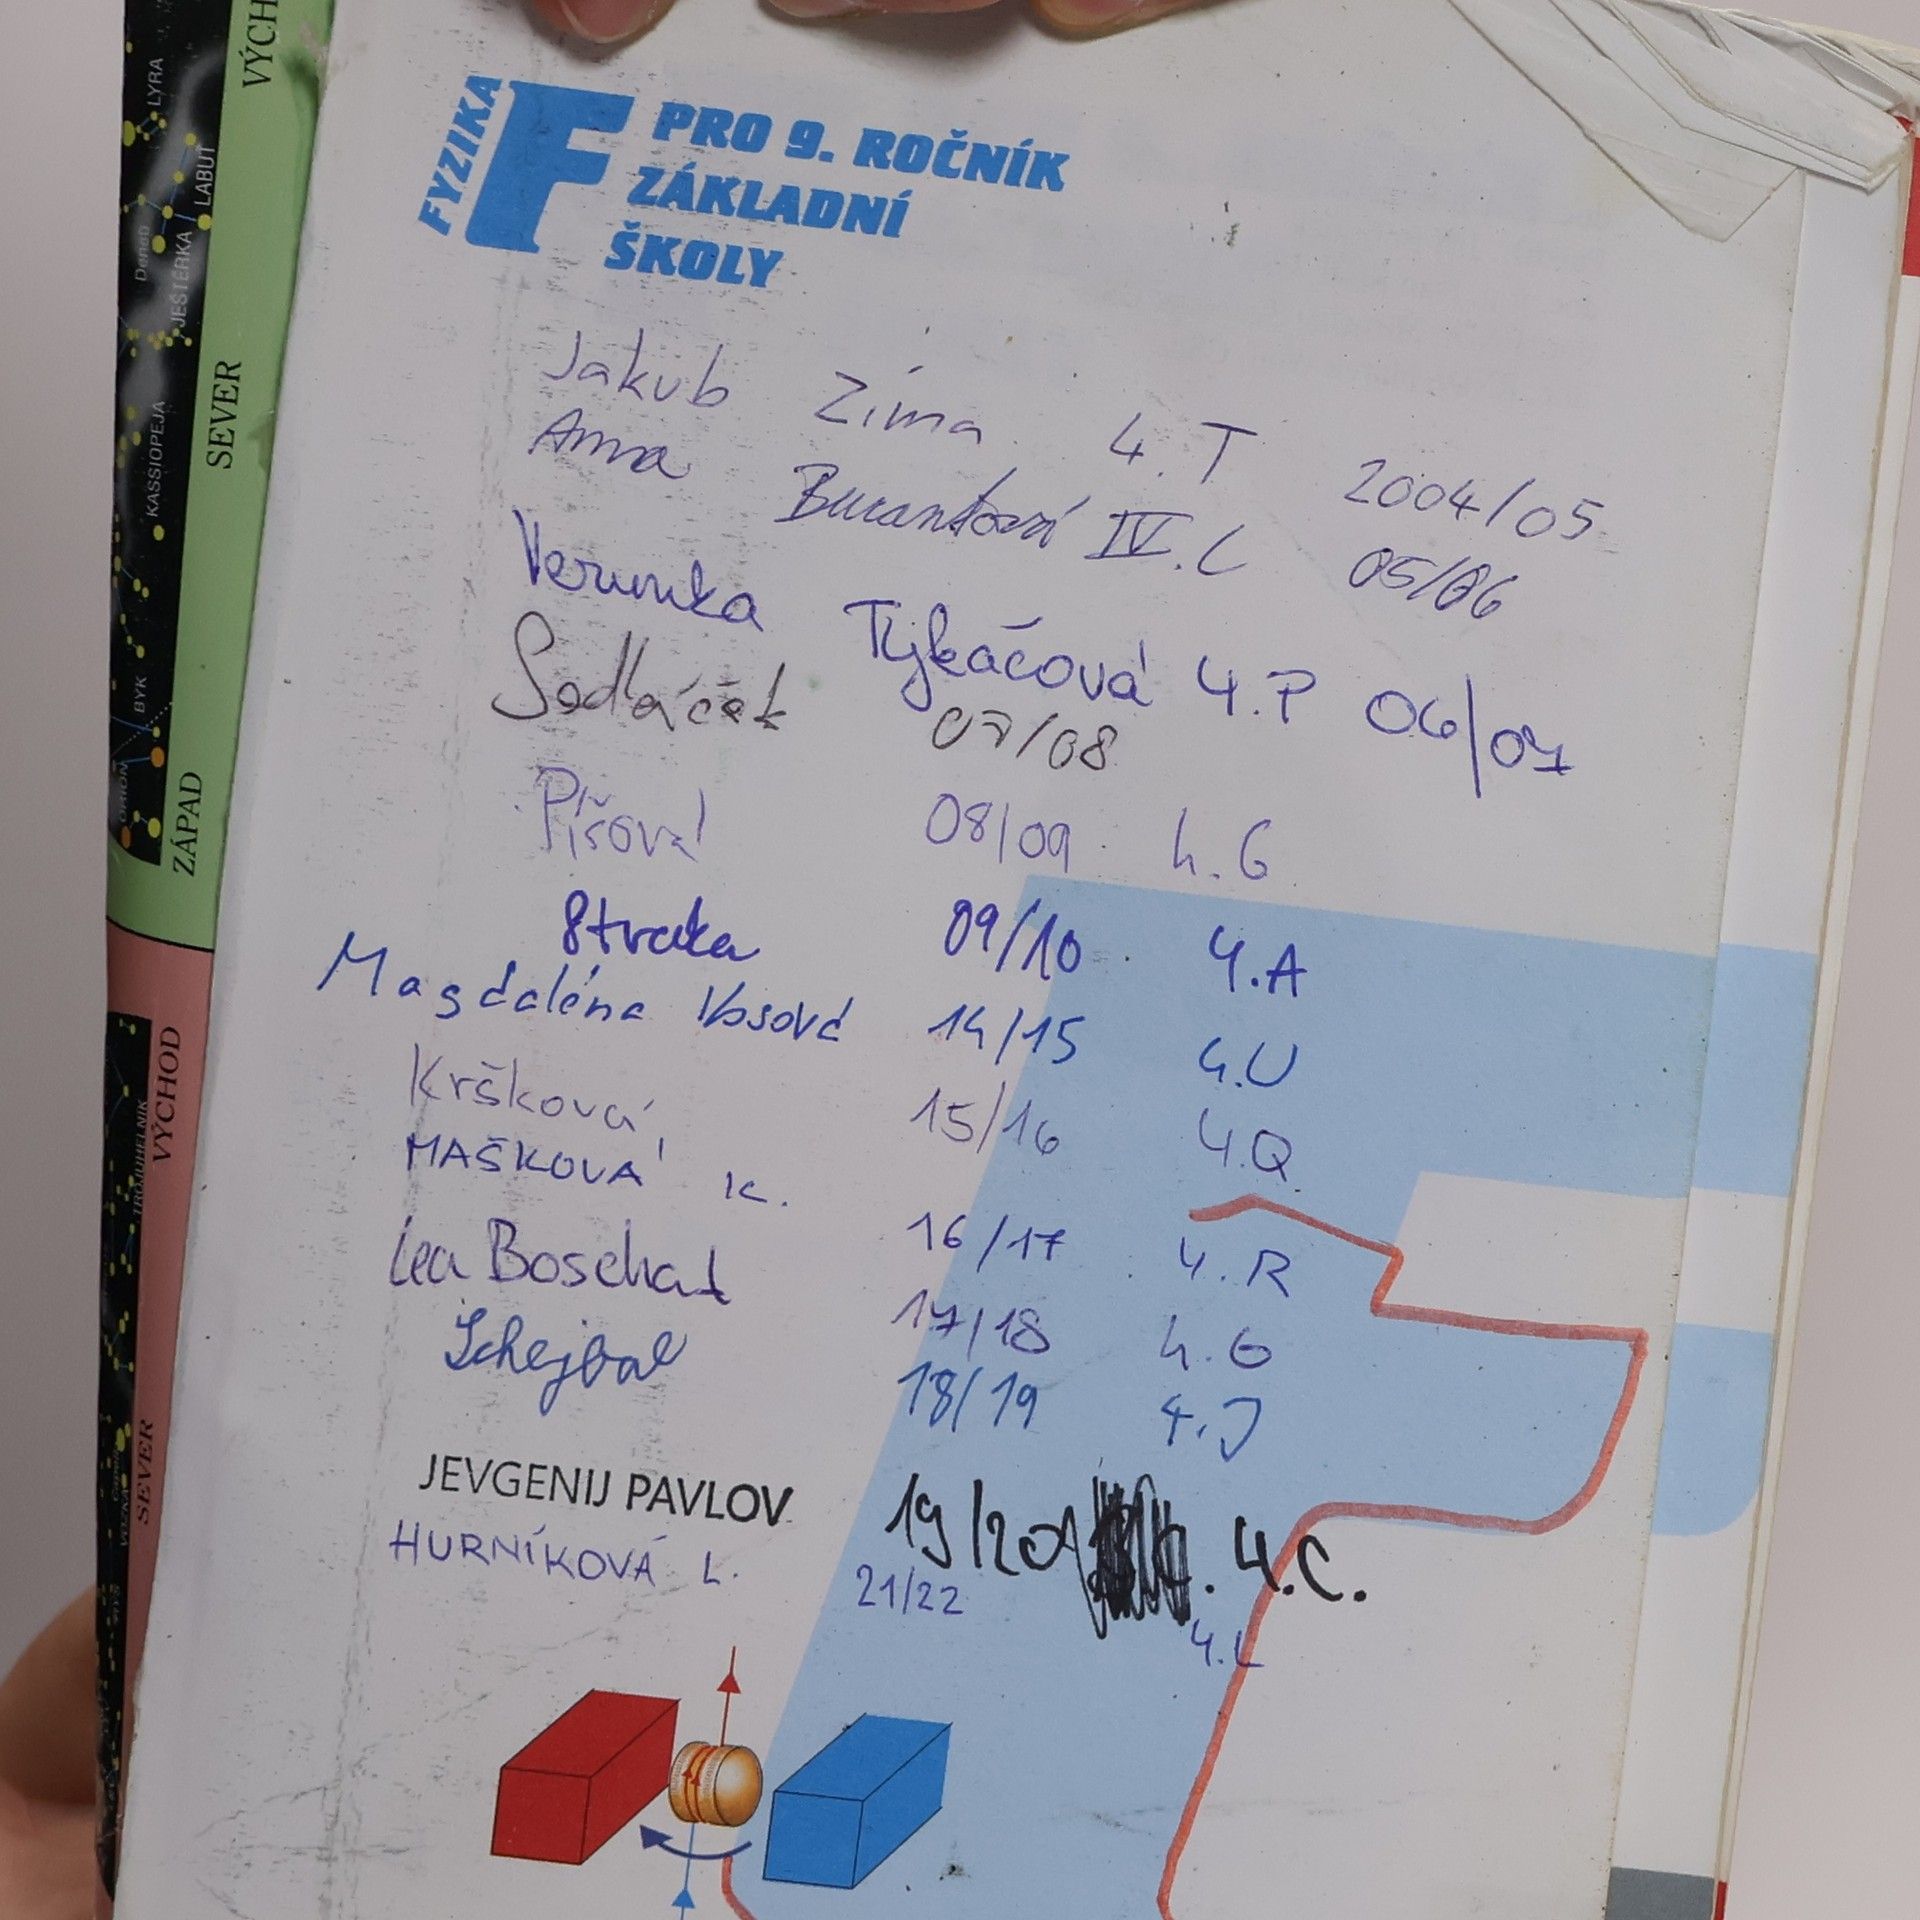 FYZIKA F PRO 9. ROČNÍK
ZÁKLADNÍ
ŠKOLY
Jakub Zíma 4.T 2004/05
Anna IV.C 05/06
Verunka Tykáčová 4.P 06/07
Sedláček 07/08
Píšová 08/09 4.G
Straka 09/10 4.A
Magdaléna Vosová 14/15 4.U
Kršková 15/16 4.Q
MAŠKOVÁ K. 16/17 4.R
Lea Boschat 17/18 4.G
Schejbal 18/19 4.J
JEVGENIJ PAVLOV 19/20 4.C.
HURNÍKOVÁ L. 21/22 4.L
VÝCH
SEVER
ZÁPAD
VÝCHOD
SEVER
LYRA
LABUŤ
Deneb
JEŠTĚRKA
KASSIOPEJA
BÝK
ORION
TROJÚHELNÍK